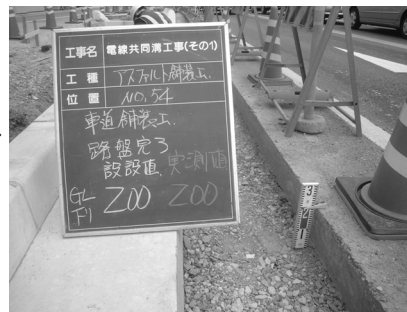 工事名 電線共同溝工事(その1)
工種 アスファルト舗装工
位置 NO.54
車道舗装工
路盤完了
設計値 実測値
GL下り 200 200
3
2
1